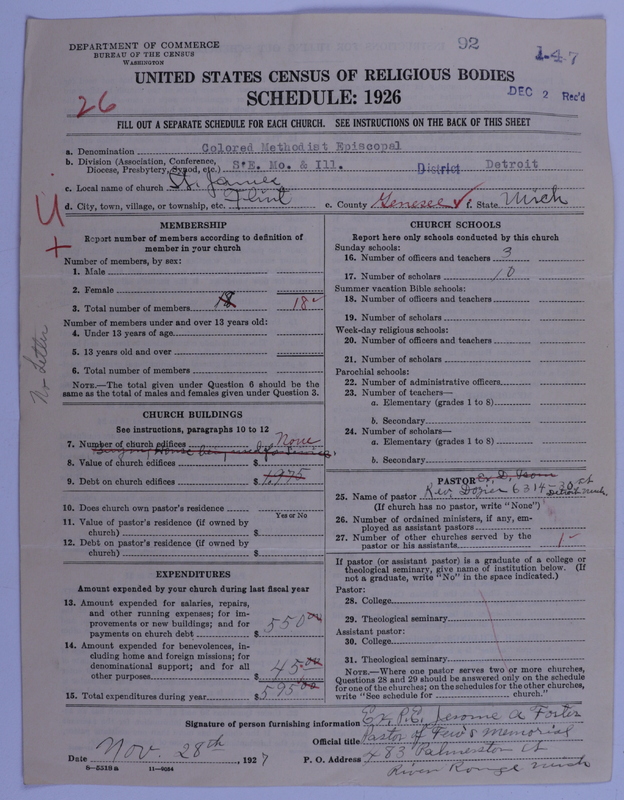 DEPARTMENT OF COMMERCE
BUREAU OF THE CENSUS
WASHINGTON
92
1-47
UNITED STATES CENSUS OF RELIGIOUS BODIES
SCHEDULE: 1926
26
DEC 2 Rec'd
FILL OUT A SEPARATE SCHEDULE FOR EACH CHURCH. SEE INSTRUCTIONS ON THE BACK OF THIS SHEET
a. Denomination Colored Methodist Episcopal
b. Division (Association, Conference, Diocese, Presbytery, Synod, etc.) S.E. Mo. & Ill. District Detroit
c. Local name of church St. James
d. City, town, village, or township, etc. Flint e. County Genesee ✓ f. State Mich
No Letter
MEMBERSHIP
Report number of members according to definition of member in your church
Number of members, by sex:
1. Male
2. Female
3. Total number of members 18 18 ✓
Number of members under and over 13 years old:
4. Under 13 years of age
5. 13 years old and over
6. Total number of members
NOTE.—The total given under Question 6 should be the same as the total of males and females given under Question 3.
CHURCH BUILDINGS
See instructions, paragraphs 10 to 12
7. Number of church edifices None
Buying House being used for Service
8. Value of church edifices $
9. Debt on church edifices $ 1,975
10. Does church own pastor's residence
Yes or No
11. Value of pastor's residence (if owned by church) $
12. Debt on pastor's residence (if owned by church) $
EXPENDITURES
Amount expended by your church during last fiscal year
13. Amount expended for salaries, repairs, and other running expenses; for improvements or new buildings; and for payments on church debt $ 550 00
14. Amount expended for benevolences, including home and foreign missions; for denominational support; and for all other purposes $ 45 00
15. Total expenditures during year $ 595 00
CHURCH SCHOOLS
Report here only schools conducted by this church
Sunday schools:
16. Number of officers and teachers 3
17. Number of scholars 10
Summer vacation Bible schools:
18. Number of officers and teachers
19. Number of scholars
Week-day religious schools:
20. Number of officers and teachers
21. Number of scholars
Parochial schools:
22. Number of administrative officers
23. Number of teachers—
a. Elementary (grades 1 to 8)
b. Secondary
24. Number of scholars—
a. Elementary (grades 1 to 8)
b. Secondary
PASTOR
25. Name of pastor Rev. Dozier 6314-30 st Detroit Mich.
(If church has no pastor, write "None")
26. Number of ordained ministers, if any, employed as assistant pastors
27. Number of other churches served by the pastor or his assistants 1
If pastor (or assistant pastor) is a graduate of a college or theological seminary, give name of institution below. (If not a graduate, write "No" in the space indicated.)
Pastor:
28. College
29. Theological seminary
Assistant pastor:
30. College
31. Theological seminary
NOTE.—Where one pastor serves two or more churches, Questions 28 and 29 should be answered only on the schedule for one of the churches; on the schedules for the other churches, write "See schedule for church."
Signature of person furnishing information Ex. P.E. Jerome A Forter
Official title Pastor of Memorial
Date Nov. 28th, 1927 P. O. Address 483 Palmerston St
River Rouge Mich
8—5519a 11—9084